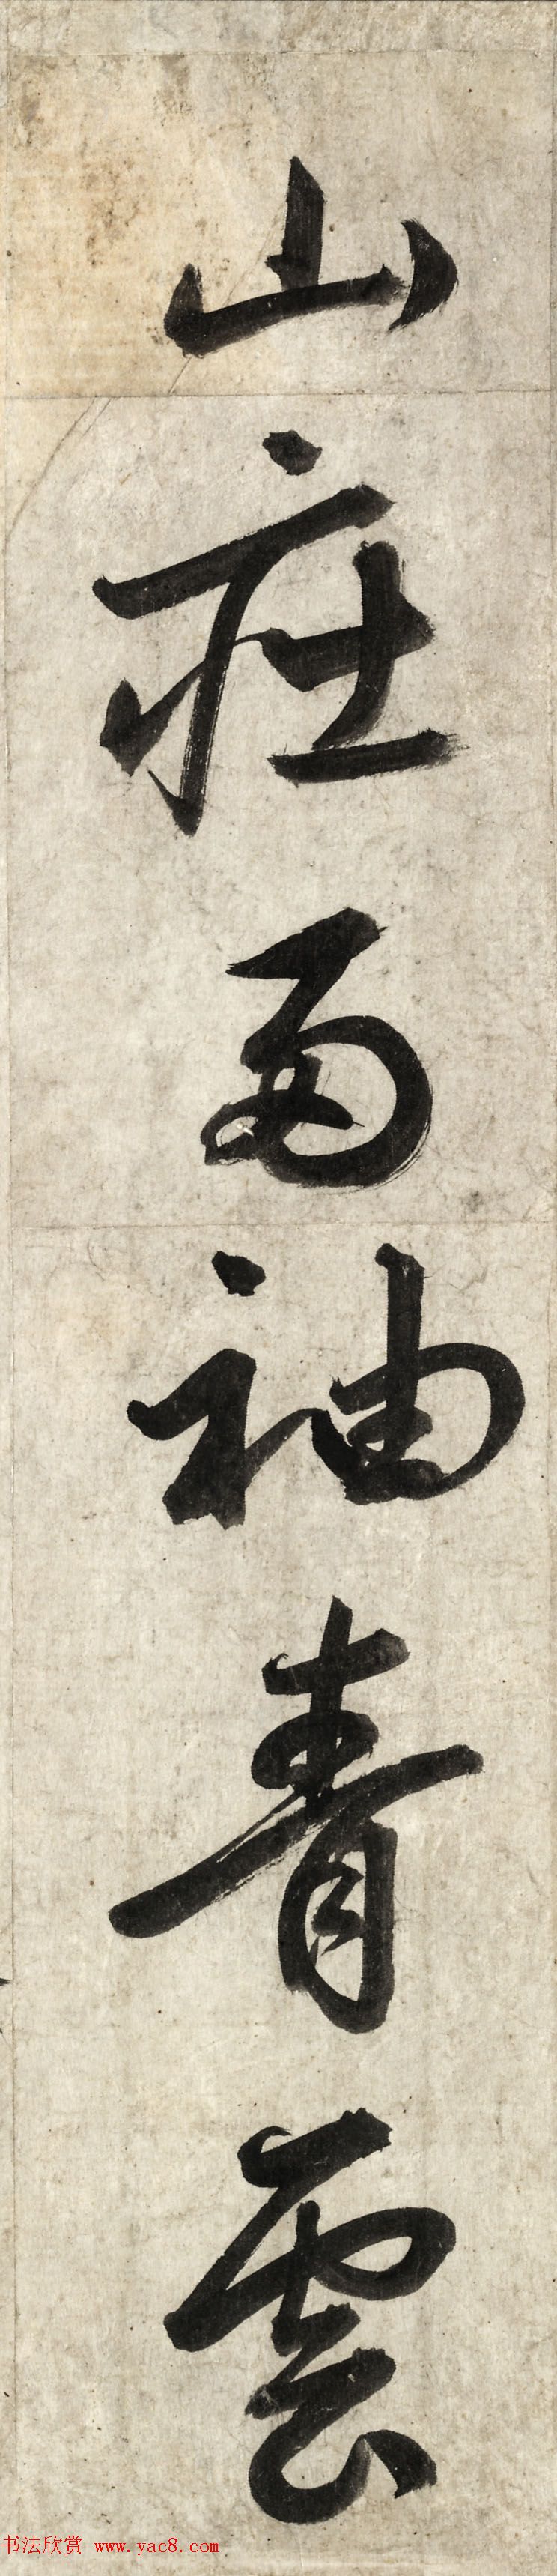 山庄两袖青雲
书法欣赏 www.yac8.com